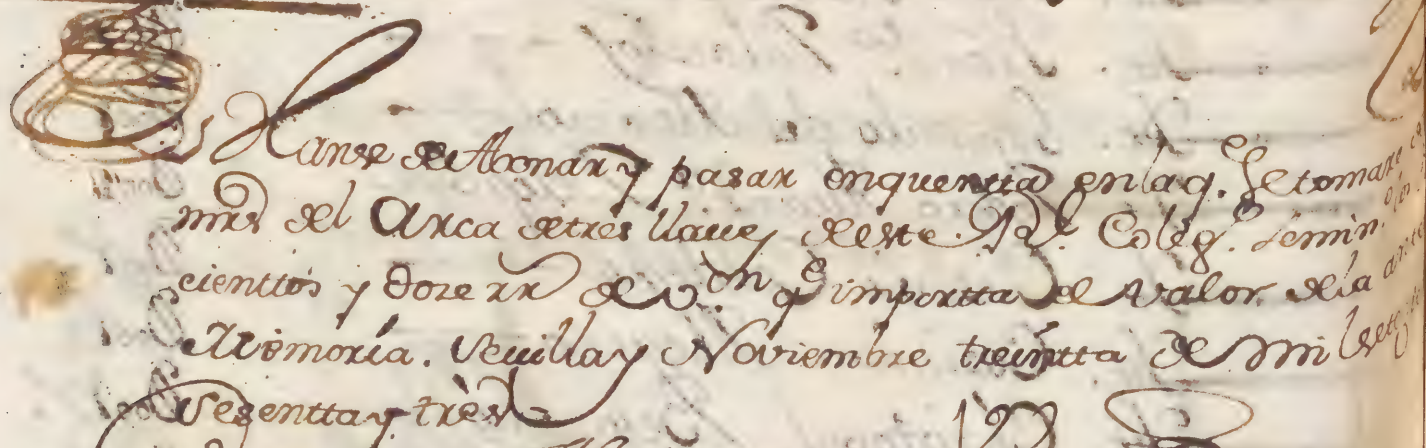 Hanse de Abonar y pasar enquentta enlaq.e Setomare
mrs del Arca detres llaves deeste Rl. Coleg.o Semin.o
cienttos y doze rr de v.on q.e importta el valor dela ante
Memoria. Sevilla y Noviembre treintta de mil sete
Sesentta y tres